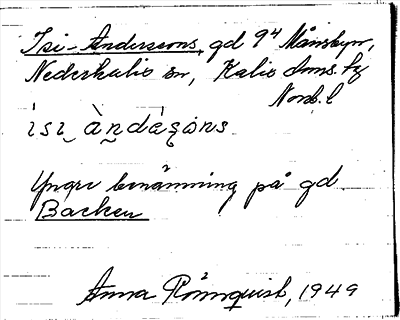 Isi-Anderssons, gd 9⁴ Månsbyn,
Nederkalix sn, Kalix doms. hg
Norrb. l
ísı̣ àndásòns
Yngre benämning på gd
Backen
Anna Rönnquist, 1949